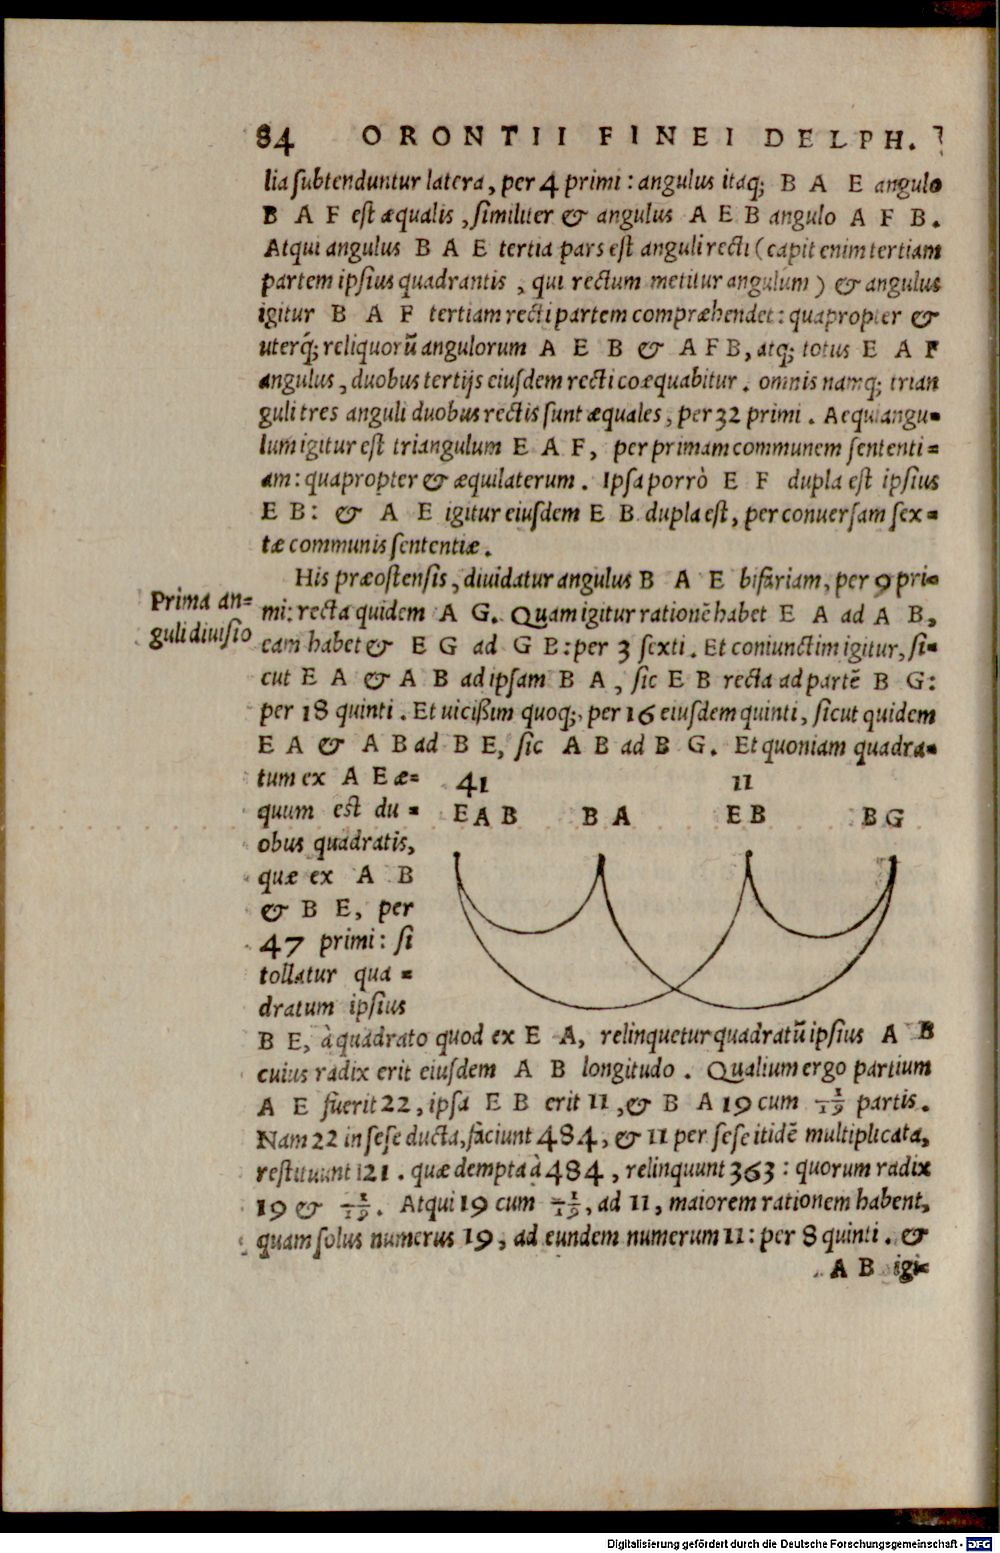 84 ORONTII FINEI DELPH.
lia subtenduntur latera, per 4 primi: angulus itaq; B A E angulo
B A F est æqualis, similiter & angulus A E B angulo A F B.
Atqui angulus B A E tertia pars est anguli recti (capit enim tertiam
partem ipsius quadrantis, qui rectum metitur angulum) & angulus
igitur B A F tertiam recti partem compræhendet: quapropter &
uterq; reliquorũ angulorum A E B & A F B, atq; totus E A F
angulus, duobus tertijs eiusdem recti coæquabitur. omnis namq; trian
guli tres anguli duobus rectis sunt æquales, per 32 primi. Aequiangu=
lum igitur est triangulum E A F, per primam communem sententi=
am: quapropter & æquilaterum. Ipsa porrò E F dupla est ipsius
E B: & A E igitur eiusdem E B dupla est, per conuersam sex=
tæ communis sententiæ.
His præostensis, diuidatur angulus B A E bifariam, per 9 pri=
Prima an=
guli diuisio
mi: recta quidem A G. Quam igitur rationẽ habet E A ad A B,
eam habet & E G ad G B: per 3 sexti. Et coniunctim igitur, si=
cut E A & A B ad ipsam B A, sic E B recta ad partẽ B G:
per 18 quinti. Et uicißim quoq;, per 16 eiusdem quinti, sicut quidem
E A & A B ad B E, sic A B ad B G. Et quoniam quadra=
tum ex A E æ=
quum est du=
obus quadratis,
quæ ex A B
& B E, per
47 primi: si
tollatur qua=
dratum ipsius
41 11
E A B B A E B B G
B E, à quadrato quod ex E A, relinquetur quadratũ ipsius A B
cuius radix erit eiusdem A B longitudo. Qualium ergo partium
A E fuerit 22, ipsa E B erit 11, & B A 19 cum 1/19 partis.
Nam 22 in sese ducta, faciunt 484, & 11 per sese itidẽ multiplicata,
restituunt 121. quæ dempta à 484, relinquunt 363: quorum radix
19 & 1/19. Atqui 19 cum 1/19, ad 11, maiorem rationem habent,
quam solus numerus 19, ad eundem numerum 11: per 8 quinti. &
A B igi=
Digitalisierung gefördert durch die Deutsche Forschungsgemeinschaft - DFG